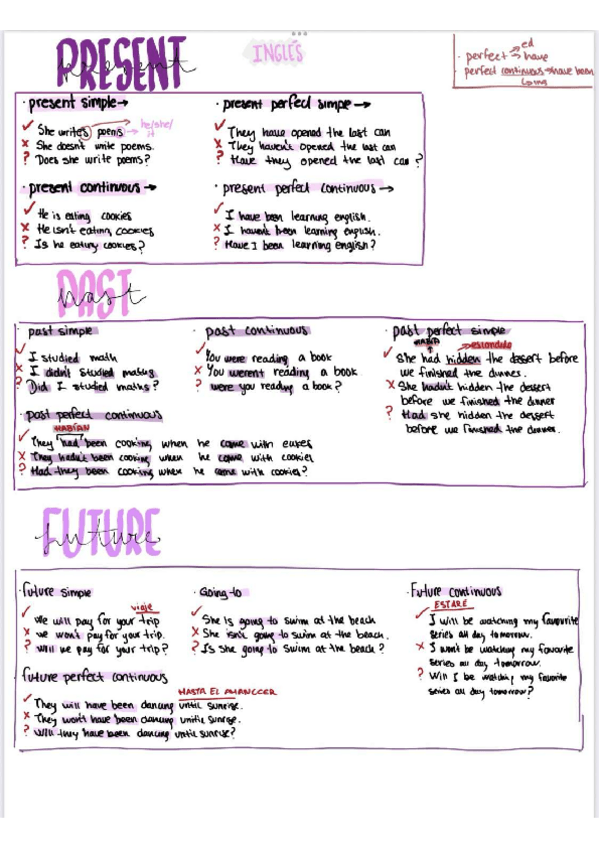 PRESENT
present
INGLÉS
· perfect → have ed
· perfect continuous → have been
going
· present simple →
✓ She writes poems → he/she/it
x She doesn't write poems.
? Does she write poems?
· present perfect simple →
✓ They have opened the last can
x They haven't opened the last can
? Have they opened the last can?
· present continuous →
✓ He is eating cookies
x He isn't eating cookies
? Is he eating cookies?
· present perfect continuous →
✓ I have been learning english.
x I haven't been learning english.
? Have I been learning english?
PAST
past
· past simple
✓ I studied math
x I didn't studied maths
? Did I studied maths?
· past continuous
✓ You were reading a book
x You weren't reading a book
? were you reading a book?
· past perfect simple
HABÍA → escondido
✓ She had hidden the desert before
we finished the dinner.
x She hadn't hidden the dessert
before we finished the dinner
? Had she hidden the dessert
before we finished the dinner.
· past perfect continuous
HABÍAN
✓ They had been cooking when he came with
x They hadn't been cooking when he came with cookies
? Had they been cooking when he came with cookies?
FUTURE
future
· future simple
viaje
✓ we will pay for your trip
x we won't pay for your trip.
? Will we pay for your trip?
· Going to
✓ She is going to swim at the beach
x She isn't going to swim at the beach.
? Is she going to swim at the beach?
· Future continuous
ESTARÉ
✓ I will be watching my favourite
series all day tomorrow.
x I won't be watching my favorite
series all day tomorrow.
? Will I be watching my favorite
series all day tomorrow?
future perfect continuous
HASTA EL AMANECER
✓ They will have been dancing until sunrise.
x They won't have been dancing until sunrise.
? Will they have been dancing until sunrise?